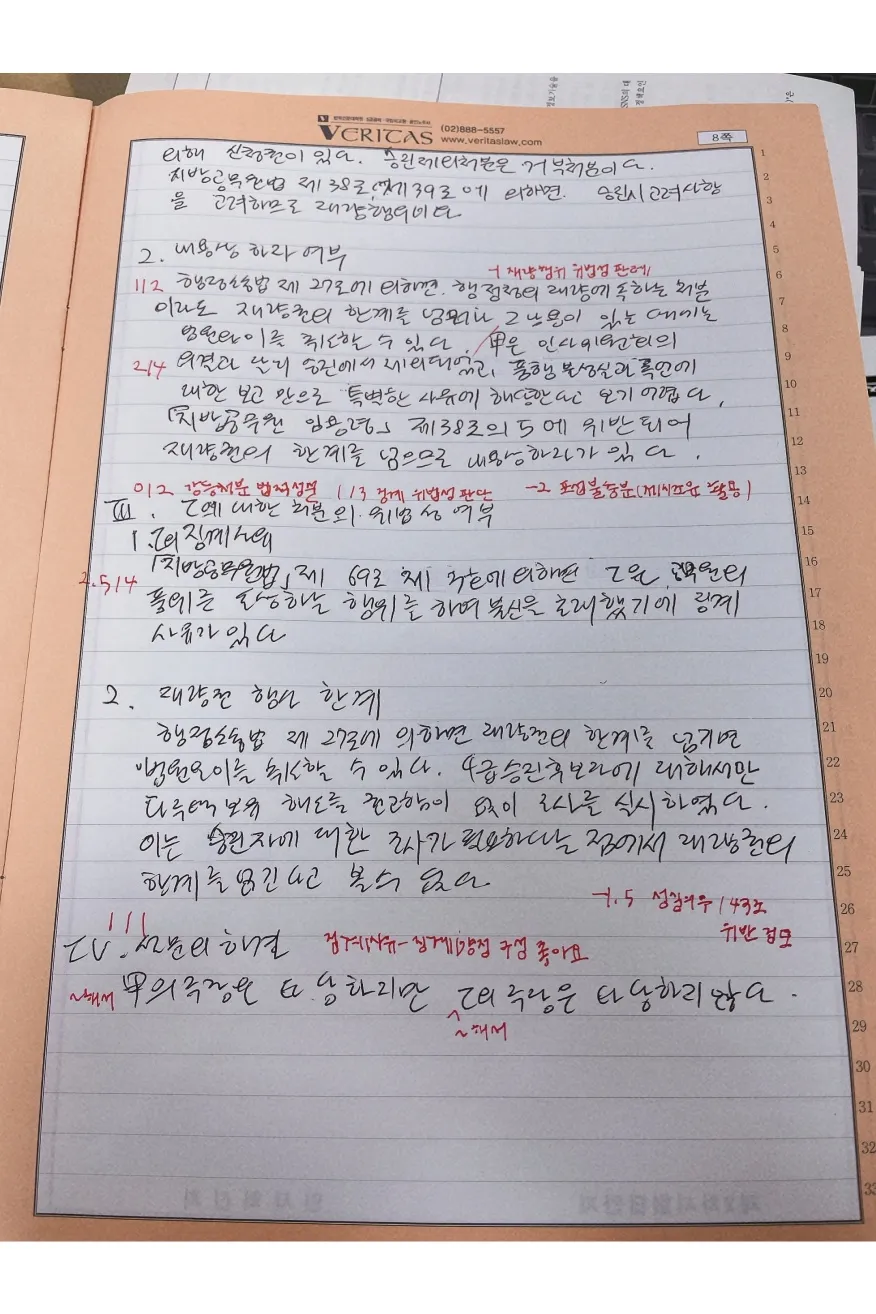 VERITAS (02)888-5557
www.veritaslaw.com
8쪽
의해 신청권이 있다. 승진제외처분은 거부처분이다.
지방공무원법 제38조, 제39조에 의하면. 승진시 고려사항
을 고려하므로 재량행위이다
2. 내용상 하자 여부
-1 재량행위 위법성 판례
1/2 행정소송법 제27조에 의하면. 행정청의 재량에 속하는 처분
이라도 재량권의 한계를 넘거나 그 남용이 있는 때에는
법원은 이를 취소할 수 있다. 甲은 인사위원회의
2/4 의결과 달리 승진에서 제외되었고, 품행 불성실과 폭언에
대한 보고 만으로 특별한 사유에 해당한다고 보기 어렵다,
「지방공무원 임용령」 제38조의5에 위반되어
재량권의 한계를 넘으므로 내용상하자가 있다.
0/2 강등처분 법적성질 1/3 징계 위법성 판단 -2 포섭불충분(제시조문 활용)
Ⅲ. 乙에 대한 처분의 위법성 여부
1. 乙의 징계사유
「지방공무원법」 제69조 제3호에 의하면 乙은 직원의
2.5/4
품위를 손상하는 행위를 하여 불신을 초래했기에 징계
사유가 있다
2. 재량권 행사 한계
행정소송법 제27조에 의하면 재량권의 한계를 넘기면
법원은 이를 취소할 수 있다. 4급승진후보자에 대해서만
다주택 보유 해소를 권고함이 없이 조사를 실시하였다.
이는 승진자에 대한 조사가 필요하다는 점에서 재량권의
한계를 넘긴다고 볼 수 없다
-1.5 성실의무/43조
위반 검토
1/1
Ⅳ. 설문의 해결 징계사유-징계양정 구성 좋아요
~해서 甲의 주장은 타당하지만 乙의 주장은 타당하지 않다.
~해서
1
2
3
4
5
6
7
8
9
10
11
12
13
14
15
16
17
18
19
20
21
22
23
24
25
26
27
28
29
30
31
32
33